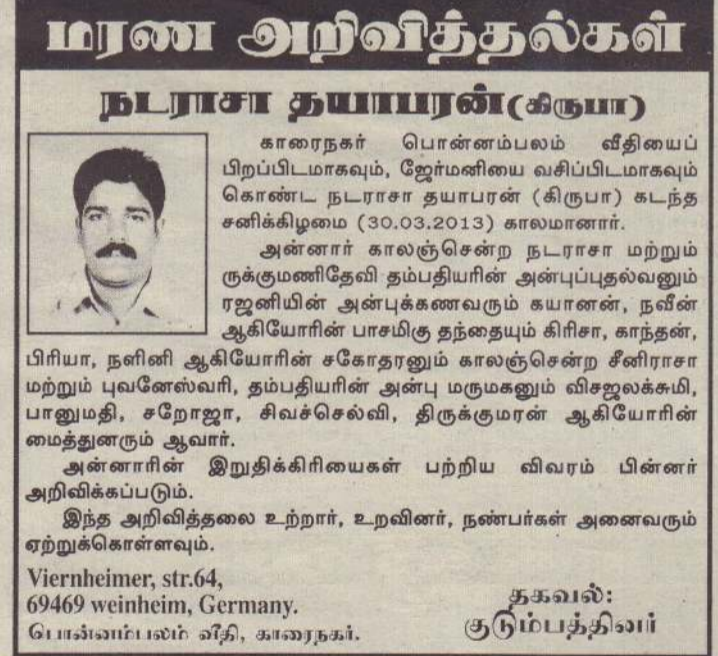 மரண அறிவித்தல்கள்
நடராசா தயாபரன்(கிருபா)
காரைநகர் பொன்னம்பலம் வீதியைப்
பிறப்பிடமாகவும், ஜேர்மனியை வசிப்பிடமாகவும்
கொண்ட நடராசா தயாபரன் (கிருபா) கடந்த
சனிக்கிழமை (30.03.2013) காலமானார்.
அன்னார் காலஞ்சென்ற நடராசா மற்றும்
ருக்குமணிதேவி தம்பதியரின் அன்புப்புதல்வனும்
ரஜனியின் அன்புக்கணவரும் கயானன், நவீன்
ஆகியோரின் பாசமிகு தந்தையும் கிரிசா, காந்தன்,
பிரியா, நளினி ஆகியோரின் சகோதரனும் காலஞ்சென்ற சீனிராசா
மற்றும் புவனேஸ்வரி, தம்பதியரின் அன்பு மருமகனும் விசஜலக்சுமி,
பானுமதி, சறோஜா, சிவச்செல்வி, திருக்குமரன் ஆகியோரின்
மைத்துனரும் ஆவார்.
அன்னாரின் இறுதிக்கிரியைகள் பற்றிய விவரம் பின்னர்
அறிவிக்கப்படும்.
இந்த அறிவித்தலை உற்றார், உறவினர், நண்பர்கள் அனைவரும்
ஏற்றுக்கொள்ளவும்.
Viernheimer, str.64,
69469 weinheim, Germany.
பொன்னம்பலம் வீதி, காரைநகர்.
தகவல்:
குடும்பத்தினர்